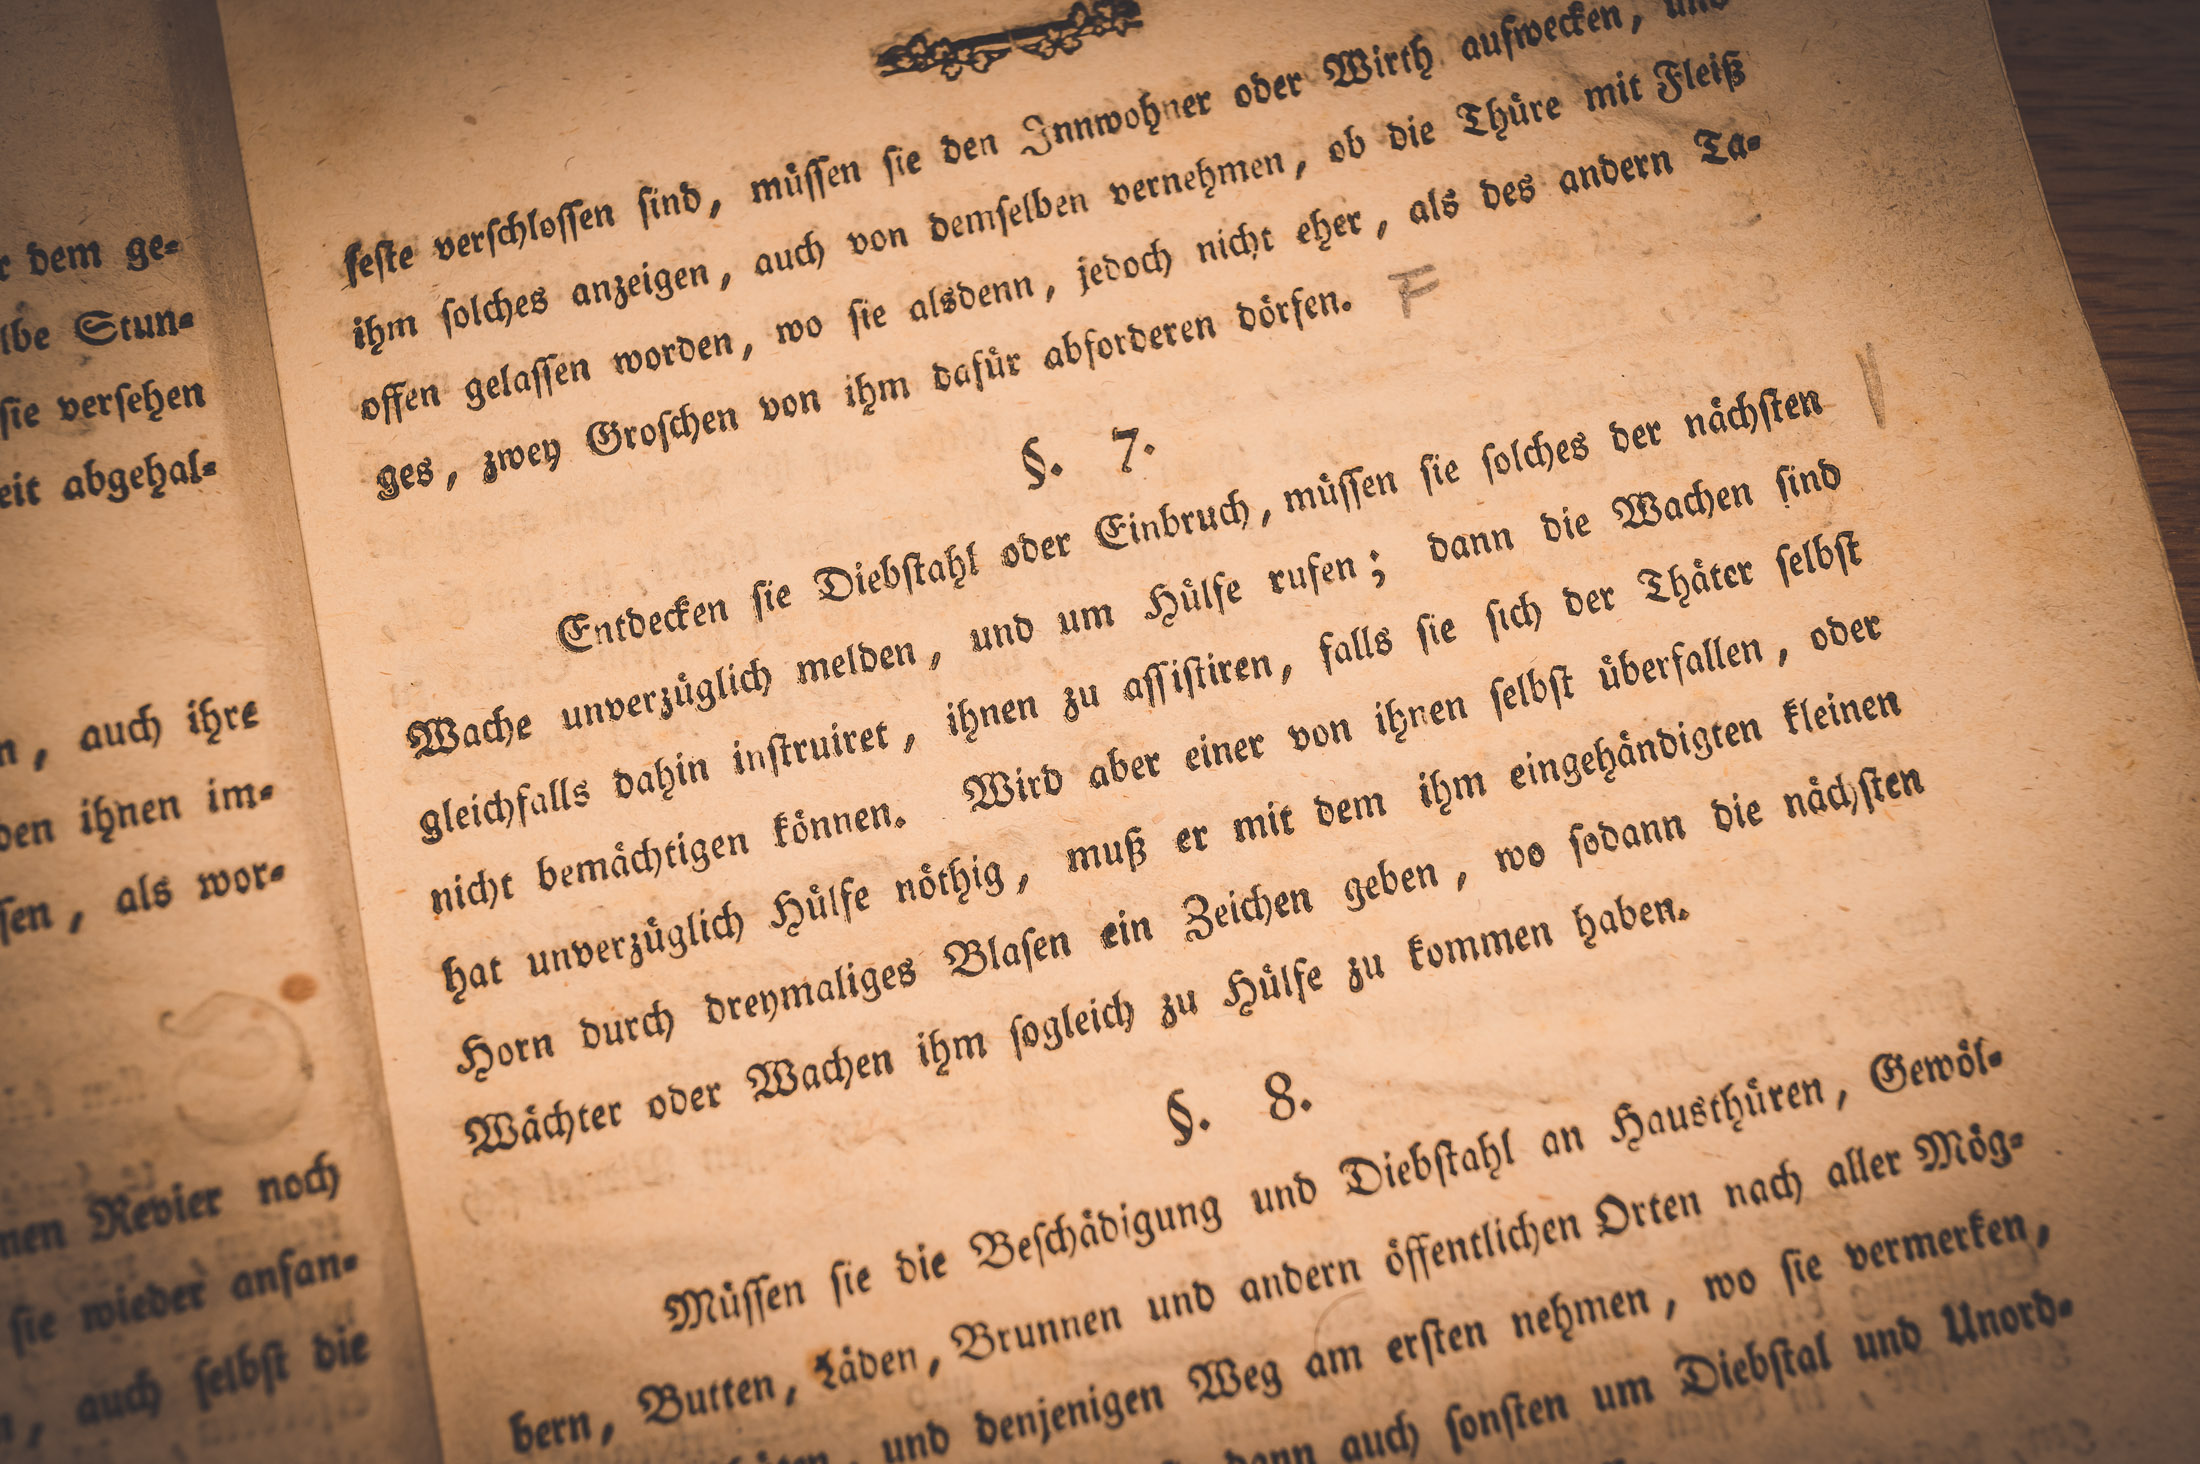 r dem ge-
lbe Stun-
sie versehen
eit abgehal-
n, auch ihre
den ihnen im-
sen, als wor-
nen Revier noch
sie wieder anfan-
n, auch selbst die
feste verschlossen sind, müssen sie den Innwohner oder Wirth aufwecken, und
ihm solches anzeigen, auch von demselben vernehmen, ob die Thüre mit Fleiß
offen gelassen worden, wo sie alsdenn, jedoch nicht eher, als des andern Ta-
ges, zwey Groschen von ihm dafür abforderen dörfen. F
§. 7.
Entdecken sie Diebstahl oder Einbruch, müssen sie solches der nächsten
Wache unverzüglich melden, und um Hülfe rufen; dann die Wachen sind
gleichfalls dahin instruiret, ihnen zu assistiren, falls sie sich der Thäter selbst
nicht bemächtigen können. Wird aber einer von ihnen selbst überfallen, oder
hat unverzüglich Hülfe nöthig, muß er mit dem ihm eingehändigten kleinen
Horn durch dreymaliges Blasen ein Zeichen geben, wo sodann die nächsten
Wächter oder Wachen ihm sogleich zu Hülfe zu kommen haben.
§. 8.
Müssen sie die Beschädigung und Diebstahl an Hausthüren, Gewöl-
bern, Butten, Läden, Brunnen und andern öffentlichen Orten nach aller Mög-
und denjenigen Weg am ersten nehmen, wo sie vermerken,
dann auch sonsten um Diebstal und Unord-